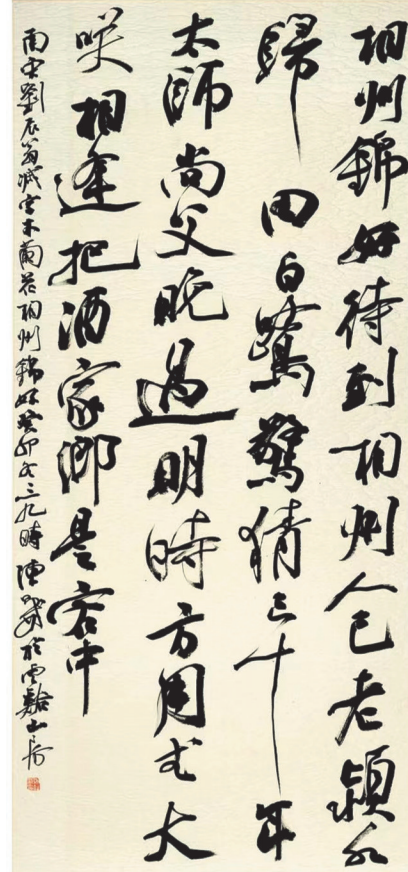 相州錦好待到相州人已老潁水
歸田白鷺驚猜已十年
太師尚父晚遇明時方用武大
咲相逢把酒家鄉是客中
南宋劉辰翁減字木蘭花相州錦好癸卯冬三九時陳於雲谿山房